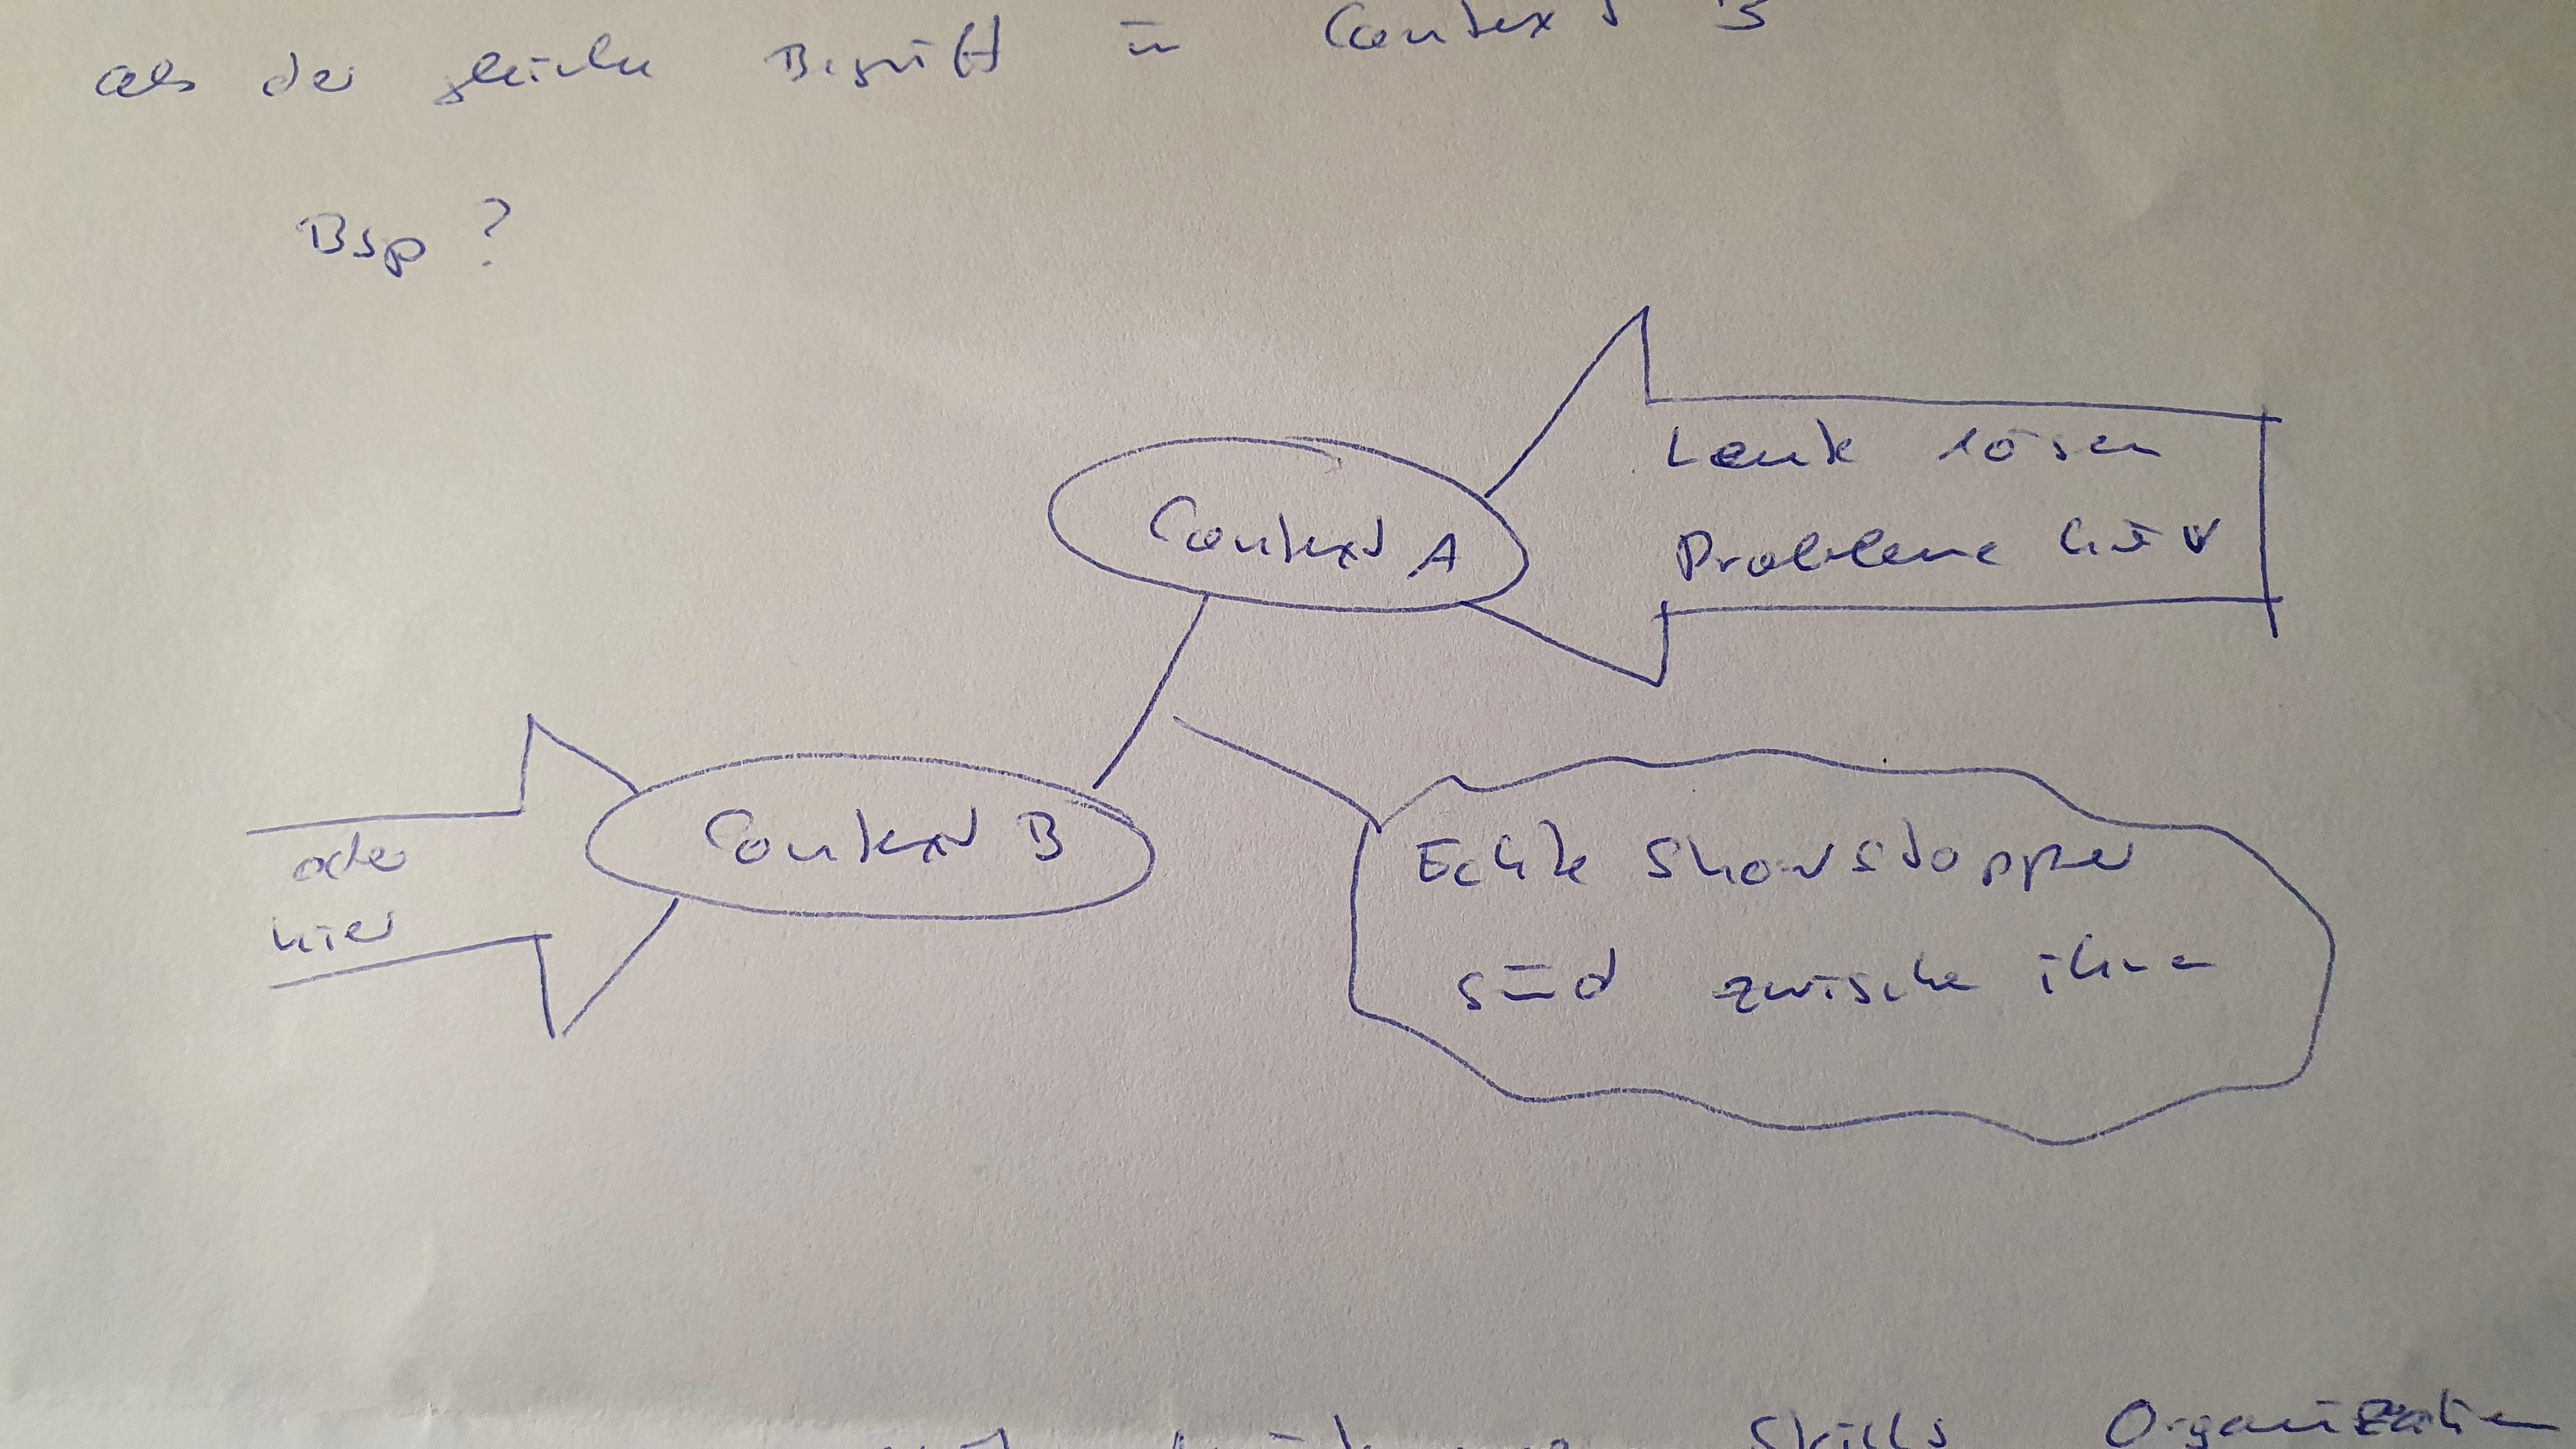 als der gleiche Begriff in Context B
Bsp?
Context A
Leute lösen
Probleme hier
Context B
oder
hier
Echte Showstopper
sind zwischen ihnen
Skills Organisation